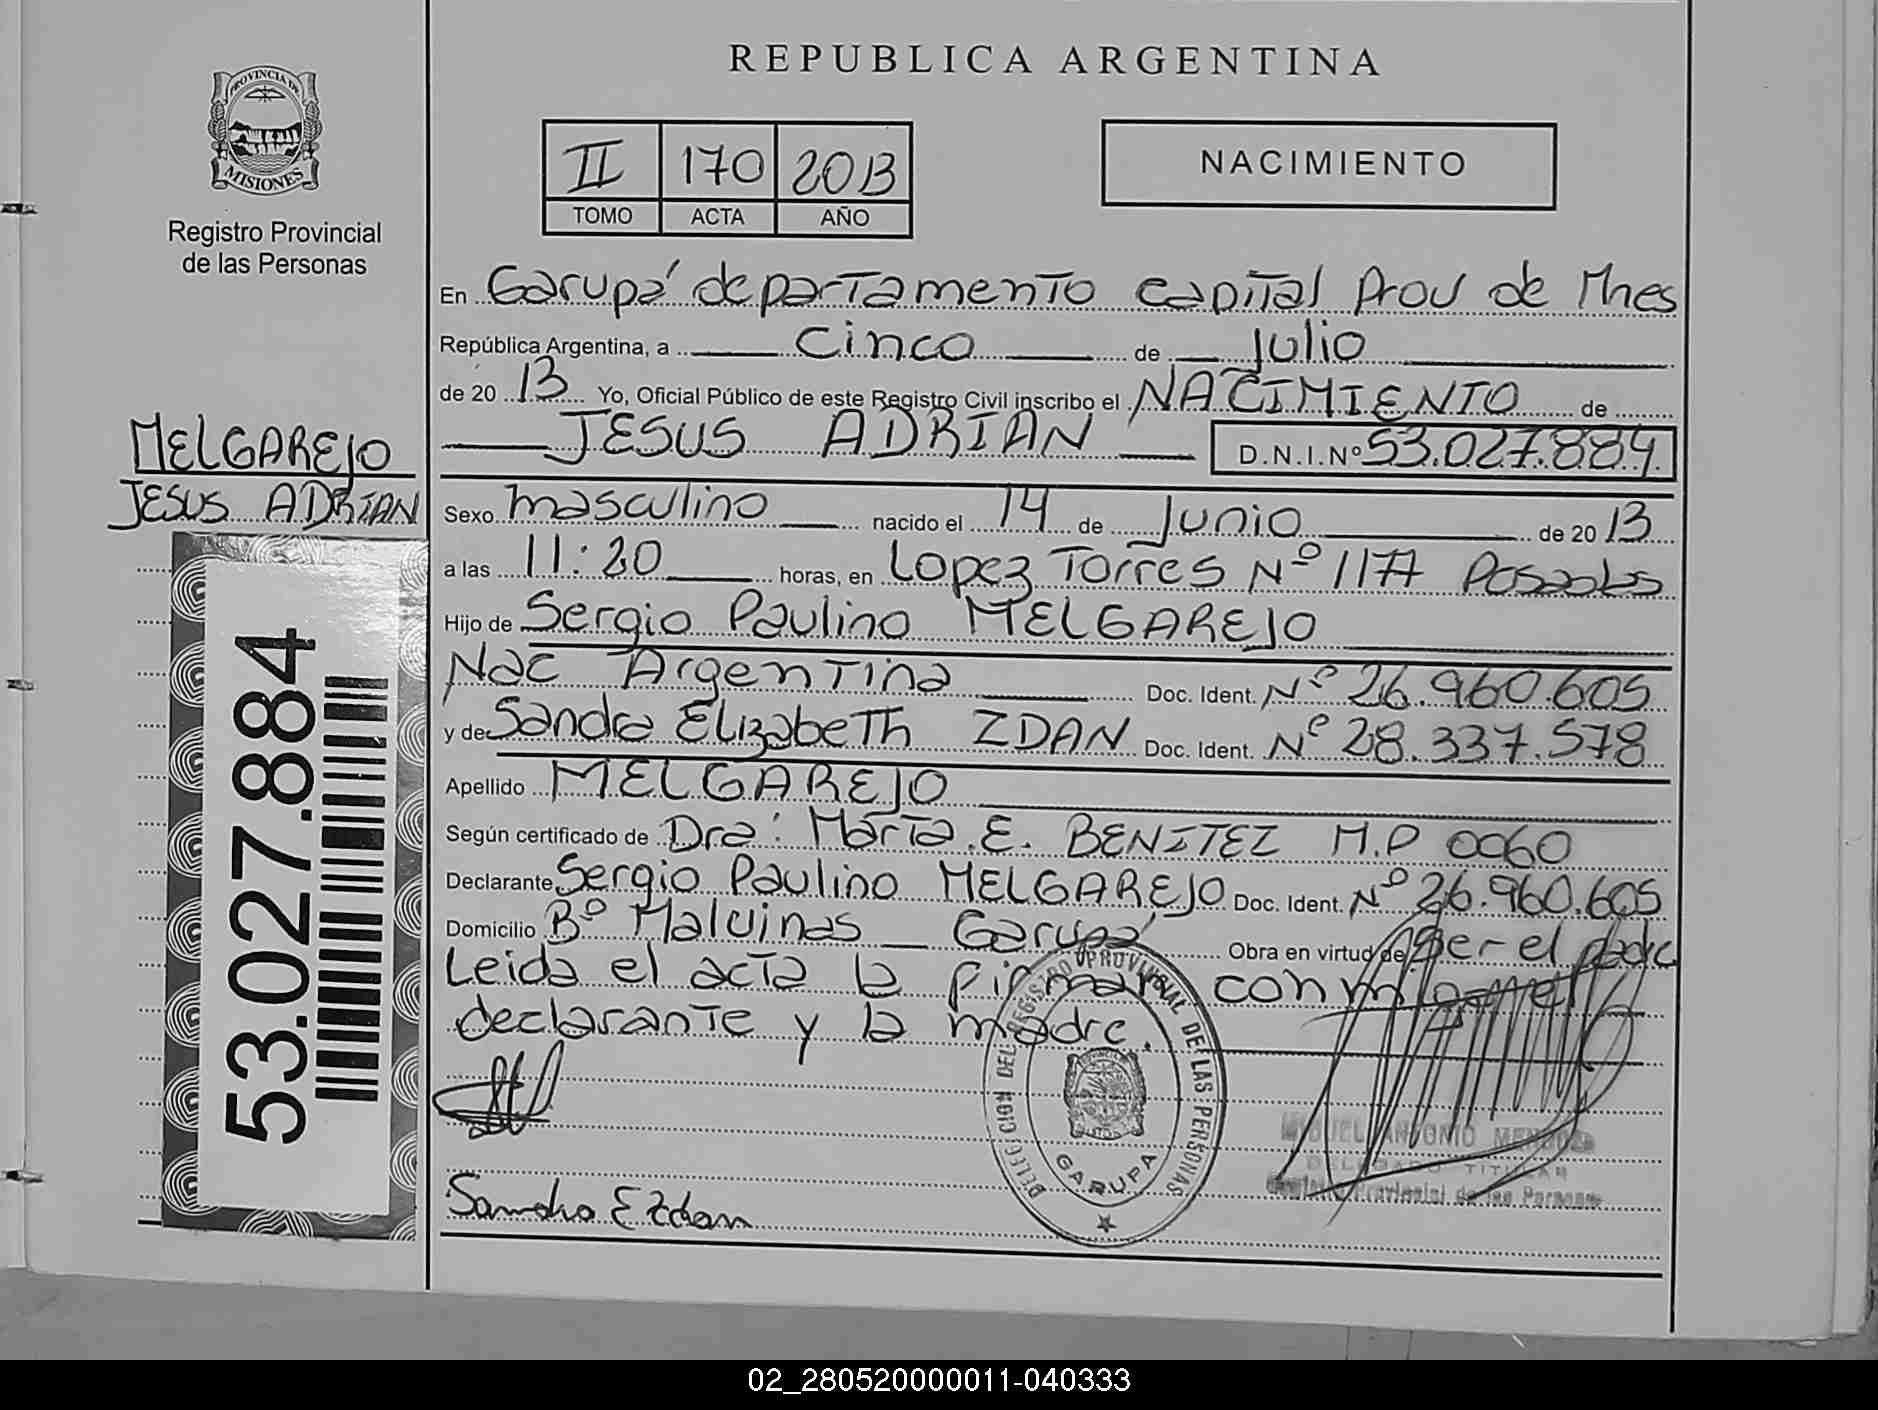 REPUBLICA ARGENTINA
PROVINCIA DE
MISIONES
Registro Provincial
de las Personas
II 170 2013
TOMO ACTA AÑO
NACIMIENTO
En Garupá departamento Capital Prov de Mnes
República Argentina, a cinco de Julio
de 20 13 Yo, Oficial Público de este Registro Civil inscribo el NACIMIENTO de
JESUS ADRIAN D.N.I.Nº 53.027.884
MELGAREJO
JESUS ADRIAN
Sexo masculino nacido el 14 de Junio de 20 13
a las 11:20 horas, en Lopez Torres Nº 1177 Posadas
Hijo de Sergio Paulino MELGAREJO
Nac Argentina Doc. Ident. Nº 26.960.605
y de Sandra Elizabeth ZDAN Doc. Ident. Nº 28.337.578
Apellido MELGAREJO
Según certificado de Dra: María E. BENITEZ M.P 0060
Declarante Sergio Paulino MELGAREJO Doc. Ident. Nº 26.960.605
Domicilio Bº Malvinas Garupá Obra en virtud de ser el padre
Leida el acta la firman conmigo el
declarante y la madre.
53.027.884
DELEGACION DEL REGISTRO PROVINCIAL DE LAS PERSONAS
GARUPA
MIGUEL ANTONIO
DELEGADO TITULAR
Registro Provincial de las Personas
Sandra E Zdan
02_280520000011-040333